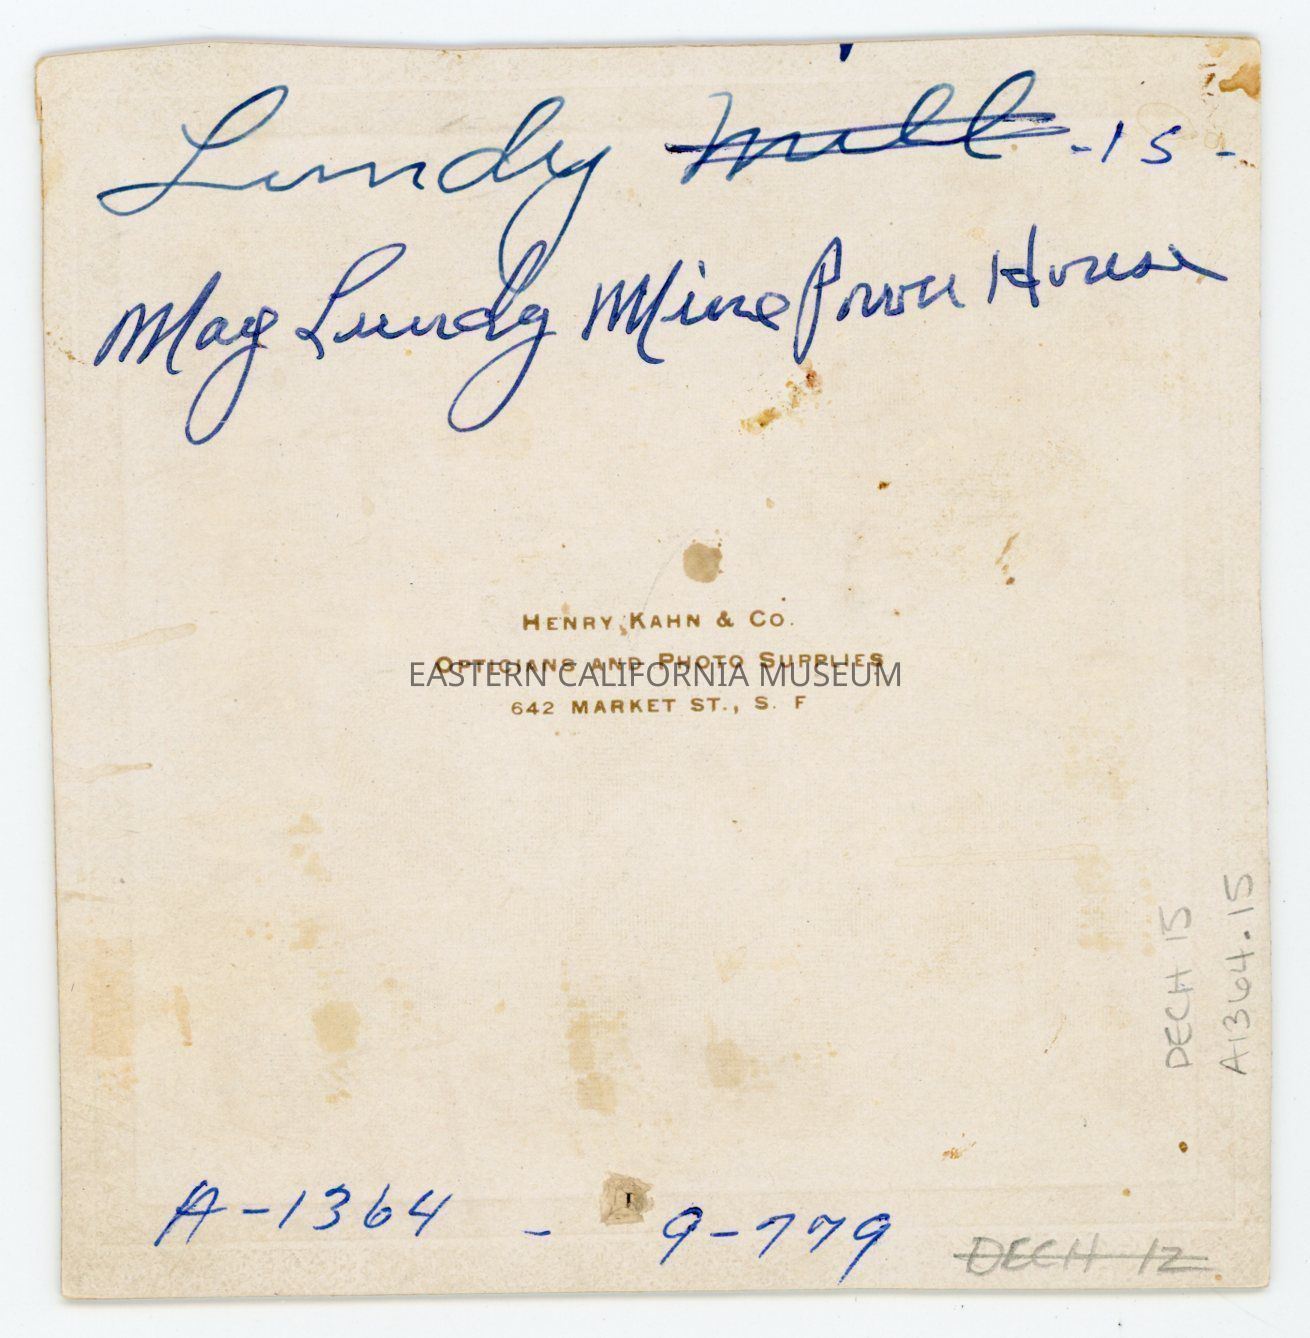 Lundy Mill -15-
May Lundy Mine Power House
HENRY KAHN & CO.
OPTICIANS AND PHOTO SUPPLIES
EASTERN CALIFORNIA MUSEUM
642 MARKET ST., S. F
DECH 15
A1364.15
A-1364 - 9-779
DECH 12